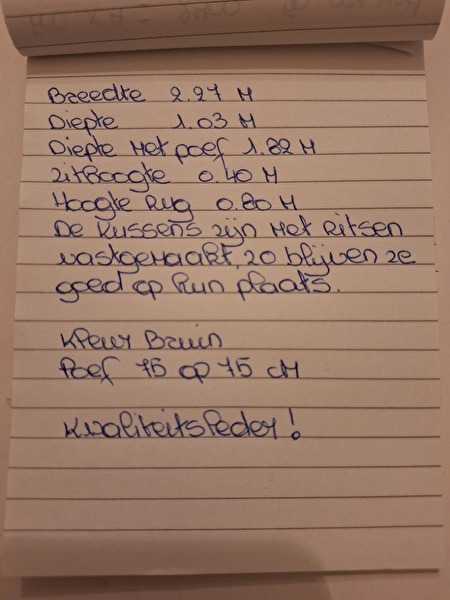 Breedte 2.27 M
Diepte 1.03 M
Diepte Met poef 1.82 M
Zithoogte 0.40 M
Hoogte Rug 0.80 M
De kussens zijn Met Ritsen
vastgemaakt, zo blijven ze
goed op hun plaats.
Kleur Bruin
Poef 75 op 75 cM
Kwaliteitsleder!